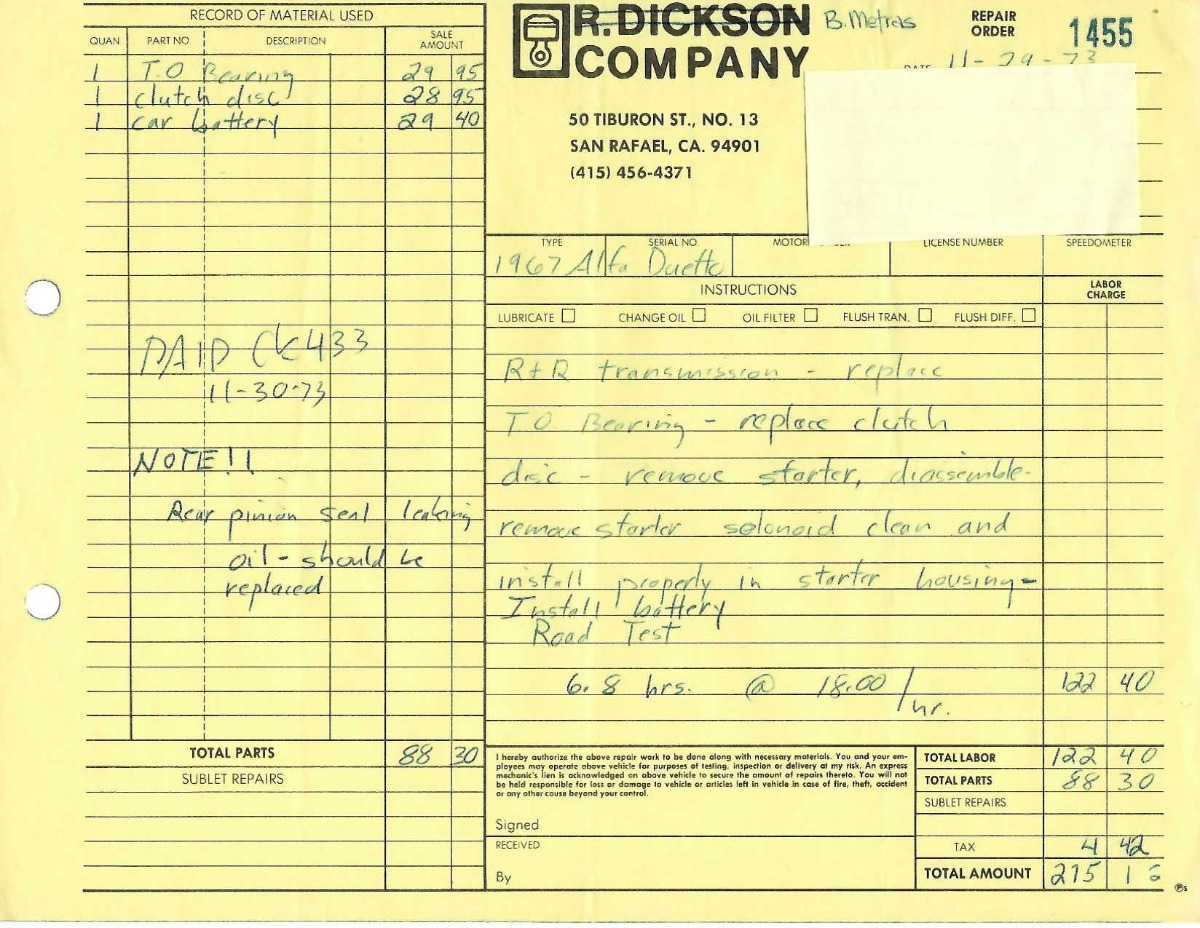 RECORD OF MATERIAL USED
QUAN PART NO DESCRIPTION SALE AMOUNT
1 T.O Bearing 29 95
1 clutch disc 28 95
1 car battery 29 40
PAID CK433
11-30-73
NOTE!!
Rear pinion seal leaking
oil - should be
replaced
TOTAL PARTS 88 30
SUBLET REPAIRS
R. DICKSON B. Metras
COMPANY
50 TIBURON ST., NO. 13
SAN RAFAEL, CA. 94901
(415) 456-4371
REPAIR ORDER 1455
DATE 11-29-73
TYPE SERIAL NO. MOTOR LICENSE NUMBER SPEEDOMETER
1967 Alfa Duetto
INSTRUCTIONS LABOR CHARGE
LUBRICATE CHANGE OIL OIL FILTER FLUSH TRAN. FLUSH DIFF.
R+R transmission - replace
T.O. Bearing - replace clutch
disc - remove starter, disassemble-
remove starter solonoid clean and
install properly in starter housing-
Install battery
Road Test
6.8 hrs. @ 18.00/hr. 122 40
I hereby authorize the above repair work to be done along with necessary materials. You and your em-
ployees may operate above vehicle for purposes of testing, inspection or delivery at my risk. An express
mechanic's lien is acknowledged on above vehicle to secure the amount of repairs thereto. You will not
be held responsible for loss or damage to vehicle or articles left in vehicle in case of fire, theft, accident
or any other cause beyond your control.
Signed
RECEIVED
By
TOTAL LABOR 122 40
TOTAL PARTS 88 30
SUBLET REPAIRS
TAX 4 42
TOTAL AMOUNT 215 12